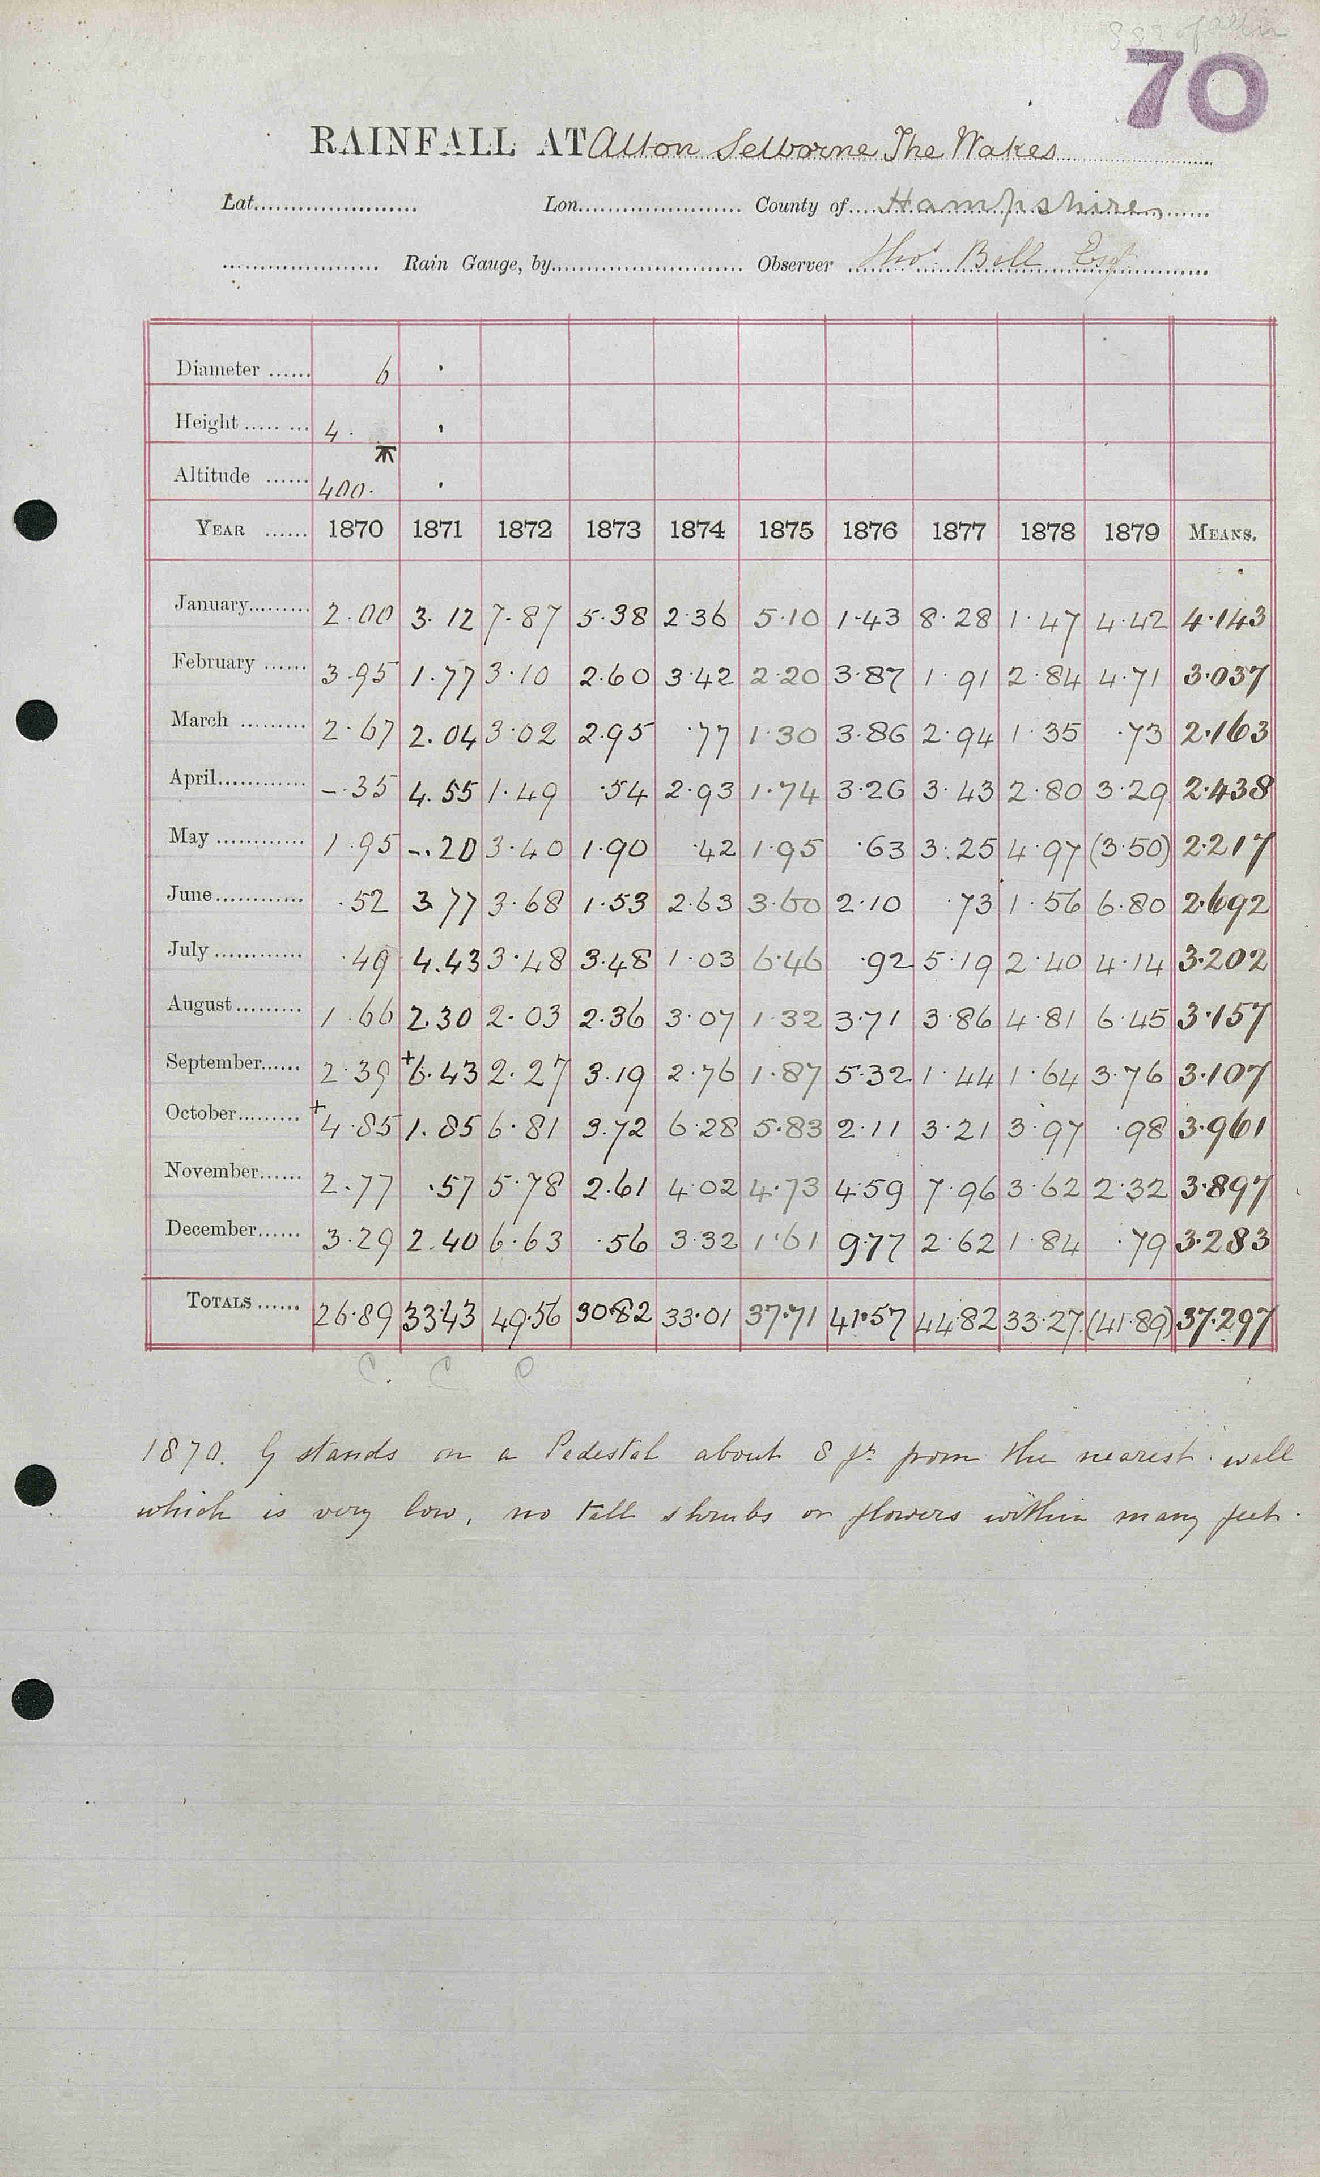 70
RAINFALL AT Alton Selborne The Wakes
Lat. Lon. County of Hampshire
Rain Gauge, by Observer Thos Bell Esqr
Diameter 6
Height 4.
Altitude 400.
YEAR 1870 1871 1872 1873 1874 1875 1876 1877 1878 1879 MEANS.
January 2.00 3.12 7.87 5.38 2.36 5.10 1.43 8.28 1.47 4.42 4.143
February 3.95 1.77 3.10 2.60 3.42 2.20 3.87 1.91 2.84 4.71 3.037
March 2.67 2.04 3.02 2.95 .77 1.30 3.86 2.94 1.35 .73 2.163
April -.35 4.55 1.49 .54 2.93 1.74 3.26 3.43 2.80 3.29 2.438
May 1.95 -.20 3.40 1.90 .42 1.95 .63 3.25 4.97 (3.50) 2.217
June .52 3.77 3.68 1.53 2.63 3.60 2.10 .73 1.56 6.80 2.692
July .49 4.43 3.48 3.48 1.03 6.46 .92 5.19 2.40 4.14 3.202
August 1.66 2.30 2.03 2.36 3.07 1.32 3.71 3.86 4.81 6.45 3.157
September 2.39 +6.43 2.27 3.19 2.76 1.87 5.32 1.44 1.64 3.76 3.107
October +4.85 1.85 6.81 3.72 6.28 5.83 2.11 3.21 3.97 .98 3.961
November 2.77 .57 5.78 2.61 4.02 4.73 4.59 7.96 3.62 2.32 3.897
December 3.29 2.40 6.63 .56 3.32 1.61 9.77 2.62 1.84 .79 3.283
TOTALS 26.89 33.43 49.56 30.82 33.01 37.71 41.57 44.82 33.27 (41.89) 37.297
C. C C
1870. G stands on a Pedestal about 8 ft from the nearest wall
which is very low, no tall shrubs or flowers within many feet.